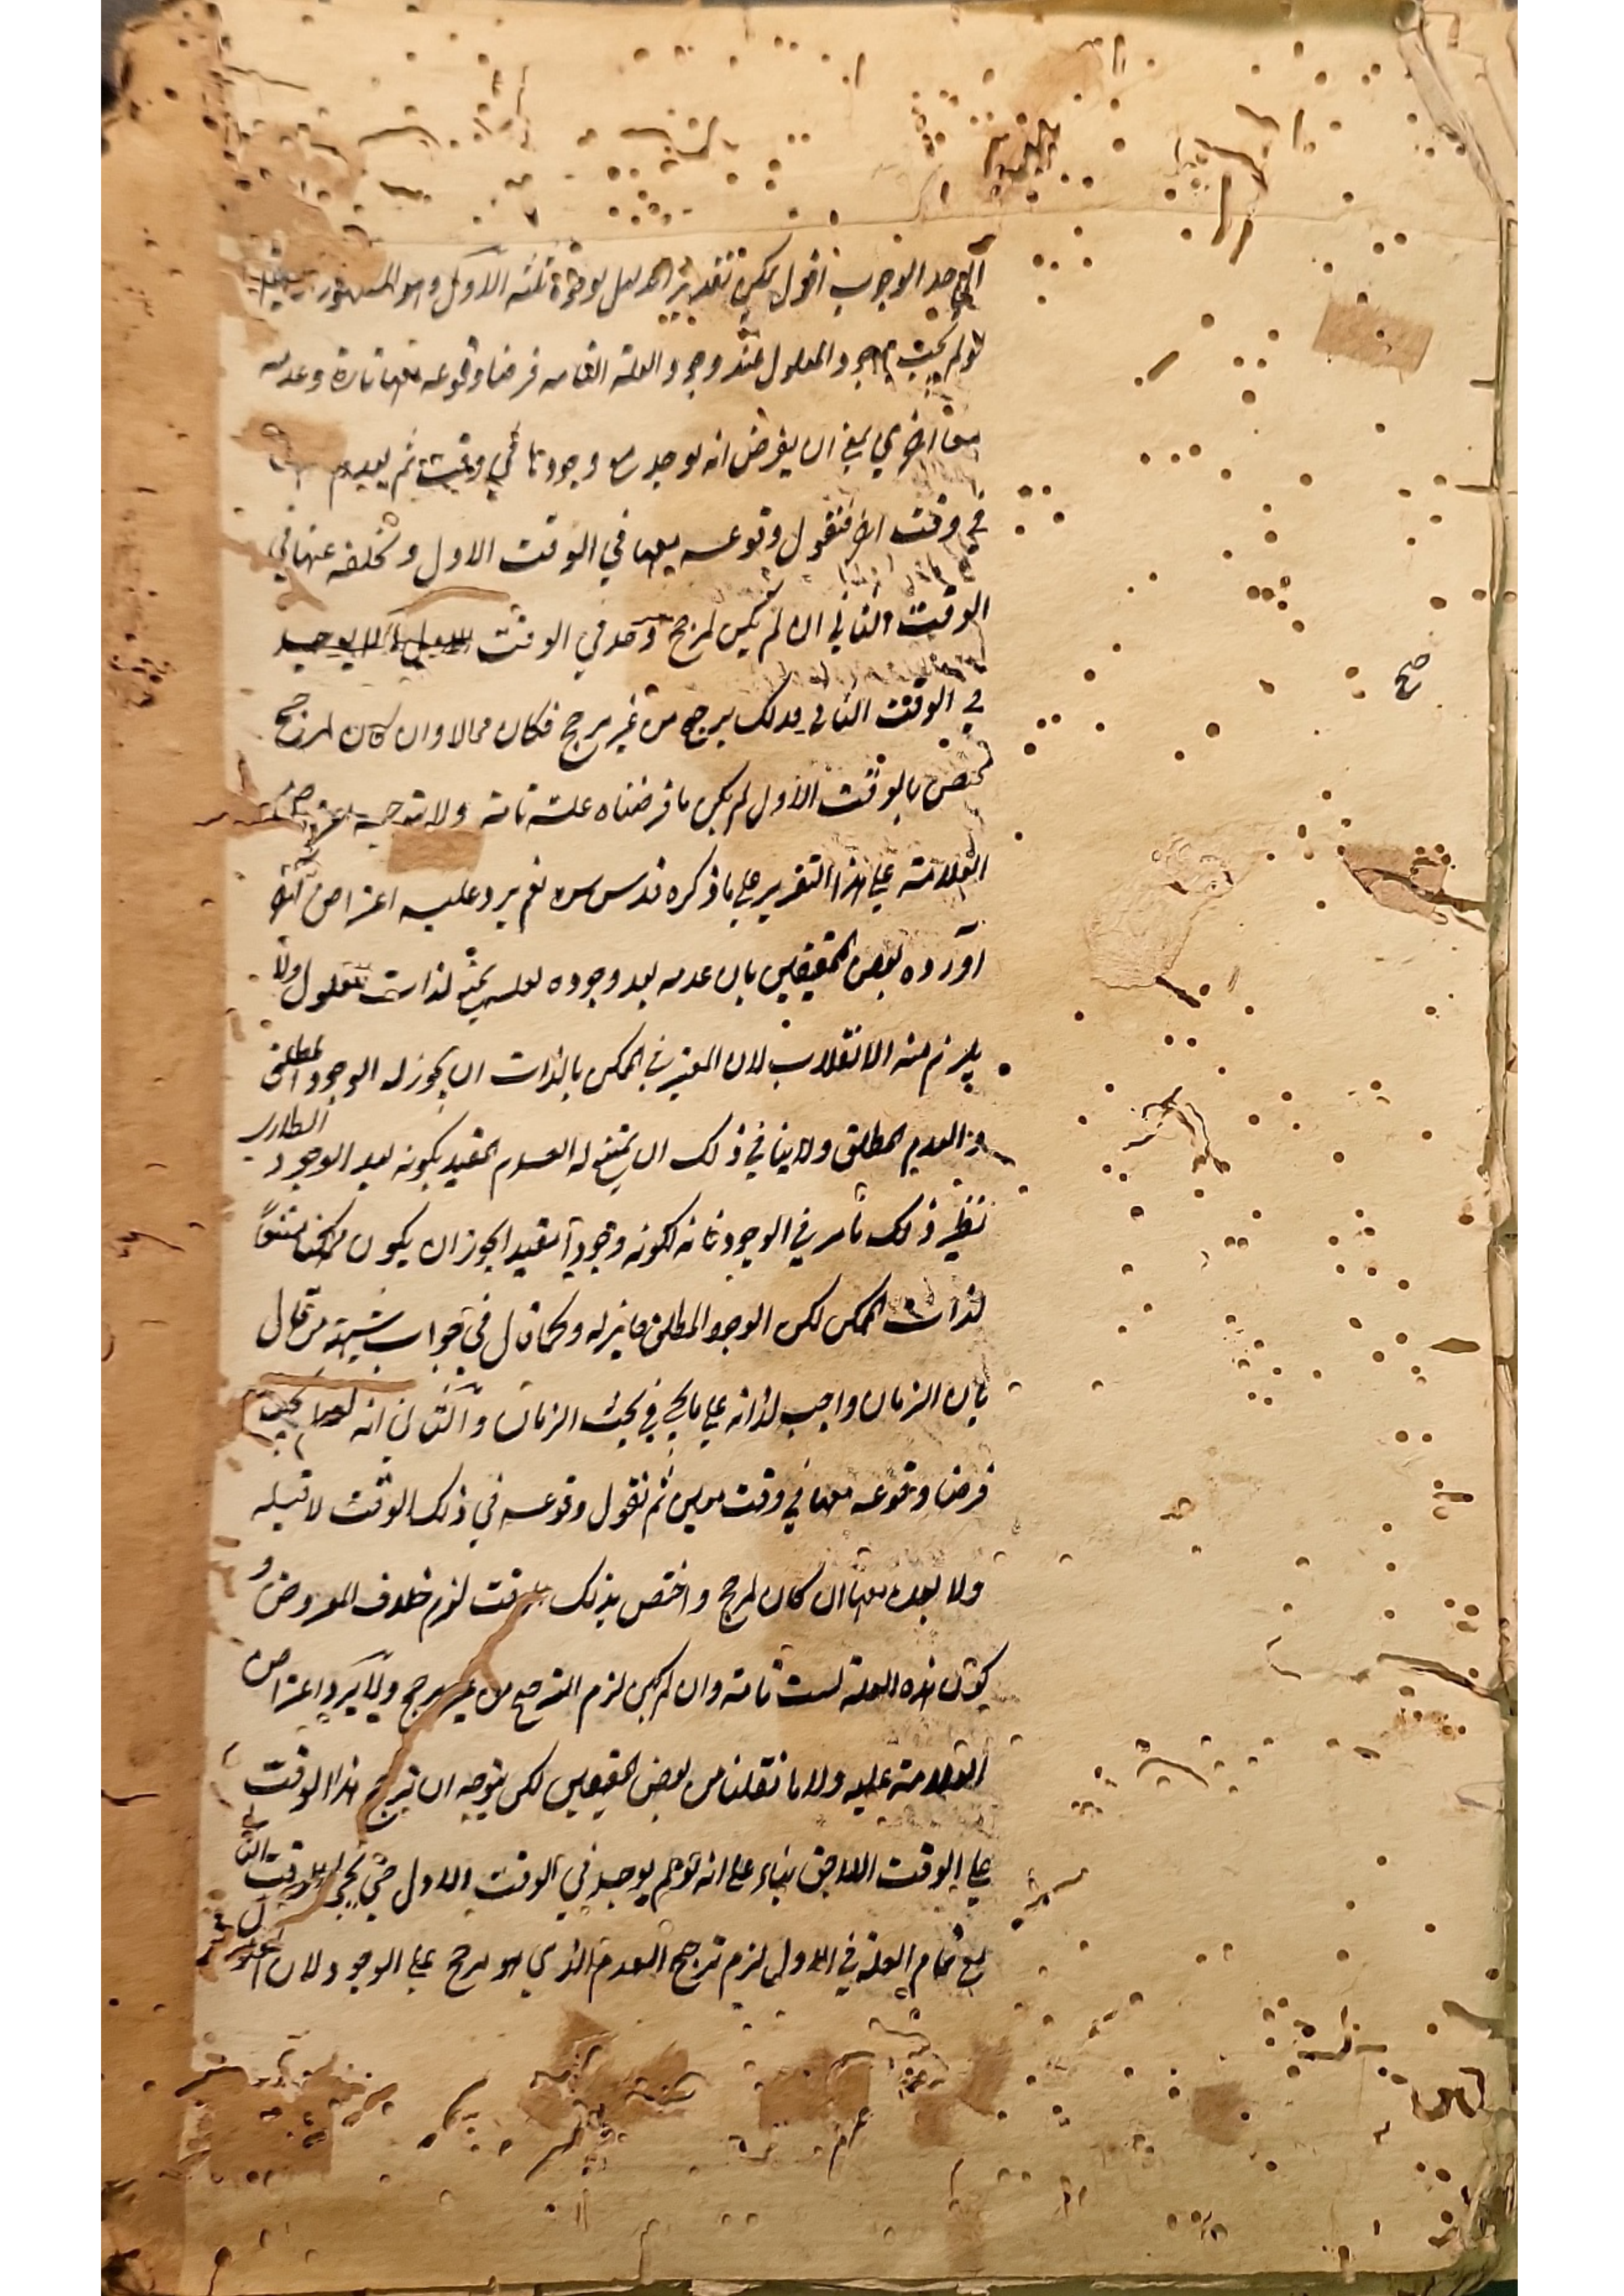 الواحد الوجوب اقول يمكن تقدير الدليل بوجوه ثلثة الاول وهو المشهور
لو لم يجب وجود المعلول عند وجود العلة التامة فرضنا وقوعه معها تارة وعدمه
معها اخرى يعني ان يفرض انه يوجد مع وجودها في وقت ثم يعدم
في وقت اخر فنقول وقوعه معها في الوقت الاول وتخلفه عنها في
الوقت الثاني ان لم يكن لمرجح وجد في الوقت الاول لا يوجد
في الوقت الثاني فذلك ترجح من غير مرجح فكان محالا وان كان لمرجح
صح
مختص بالوقت الاول لم يكن ما فرضناه علة تامة ولا يتوجه اعتراض
العلامة على هذا التقرير على ما ذكره قدس سره نعم يرد عليه اعتراض اخر
اورده بعض المحققين بان عدمه بعد وجوده لعله يمتنع لذات المعلول ولا
يلزم منه الانقلاب لان المعتبر في الممكن بالذات ان يجوز له الوجود المطلق
والعدم المطلق ولا ينافي ذلك ان يمتنع له العدم المقيد بكونه بعد الوجود
الطاري
نظير ذلك ما مر في الوجود فانه لكونه وجودا مقيدا يجوز ان يكون ممتنعا
لذات الممكن لكن الوجود المطلق جائز له وكما قال في جواب شبهة من قال
بان الزمان واجب لذاته على ما يجئ في بحث الزمان والثاني انه لو لم يجب
فرضنا وقوعه معها في وقت معين ثم نقول وقوعه في ذلك الوقت لا قبله
ولا بعده معها ان كان لمرجح واختص بذلك الوقت لزم خلاف المفروض و
كون هذه العلة ليست تامة وان لم يكن لزم الترجح من غير مرجح ولا يرد اعتراض
العلامة عليه ولا ما نقلنا من بعض المحققين لكن يتوجه ان ترجح هذا الوقت
على الوقت اللاحق بناء على انه لو لم يوجد في الوقت الاول حتى يجئ الوقت الثاني
مع تمام العلة في الاول لزم ترجح العدم الذي هو مرجح على الوجود لان